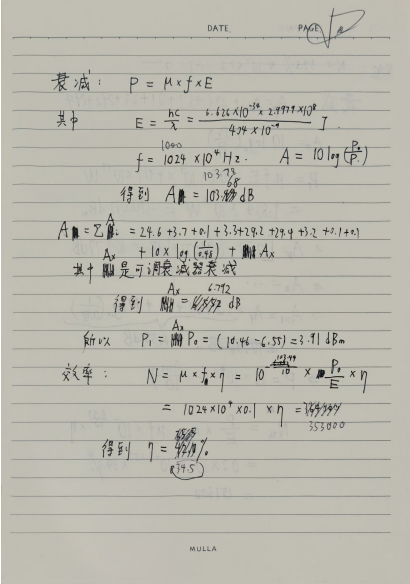 DATE. PAGE
衰减: P = μ×f×E
其中 E = hc/λ = 6.626×10^-34 × 2.9979×10^8 / 404×10^-9 J.
f = 1024×10^4 Hz. A = 10 log(P0/P1)
得到 A = 103.68 dB
A = Σ Ai = 24.6+3.7+0.1+3.3+29.2+29.4+3.2+0.1+0.1
+ 10× log(1/0.48) + Ax
其中 Ax 是可调衰减器衰减
得到 Ax = 6.792 dB
所以 P1 = Ax P0 = (10.46-6.55)=3.91 dBm
效率: N = μ×f×η = 10 × P0/E × η
= 1024×10^4×0.1 × η = 353000
得到 η = 34.5 %
MULLA